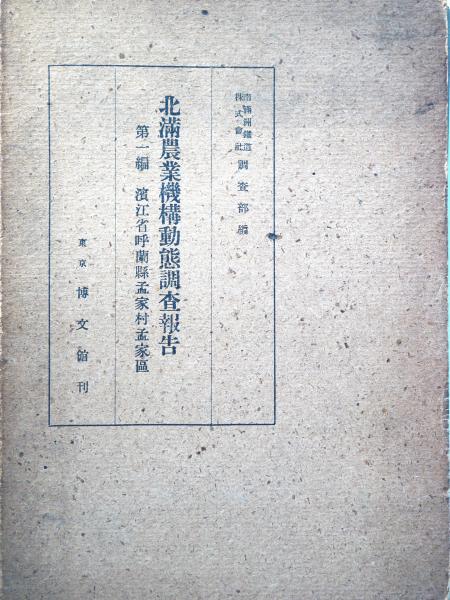 南滿洲鐵道
株式會社
調査部編
北滿農業機構動態調査報告
第一編 濱江省呼蘭縣孟家村孟家區
東京 博文館刊